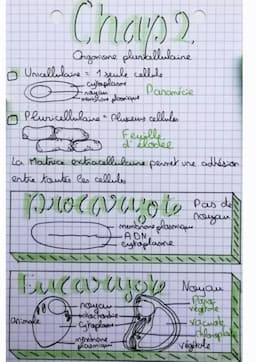 Chap 2.
Organisme pluricellulaire
Unicellulaire = 1 seule cellule
cytoplasme
noyau
membrane plasmique
Paramécie
Pluricellulaire = Plusieurs cellules
Feuille
d'élodée
La Matrice extracellulaire permet une adhésion
entre toutes les cellules
Procaryote
Pas de
noyau
membrane plasmique
ADN
cytoplasme
Eucaryote
Noyau
noyau
mitochondrie
cytoplasme
membrane
plasmique
Animale
Paroi
végétale
vacuole
Végétale